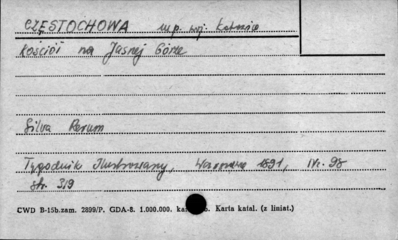 CZĘSTOCHOWA m.p. woj. Katowice
Kościół na Jasnej Górze
Silva Rerum
Tygodnik Ilustrowany, Warszawa 1891, Nr. 98
str. 319
CWD B-15b.zam. 2899/P. GDA-8. 1.000.000. Karta katal. (z liniat.)